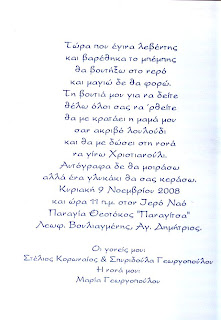 Τώρα που έγινα λεβέντης
και βαρέθηκα το μπέμπης
θα βουτήξω στο νερό
και μαγιώ δε θα φορώ.
Τη βουτιά μου για να δείτε
θέλω όλοι σας να 'ρθείτε
θα με κρατάει η μαμά μου
σαν ακριβό λουλούδι
και θα με δώσει στη νονά
να γίνω Χριστιανούλι.
Αυτόγραφα δε θα μοιράσω
αλλά ένα γλυκάκι θα σας κεράσω.
Κυριακή 9 Νοεμβρίου 2008
και ώρα 11 π.μ. στον Ιερό Ναό
Παναγία Θεοτόκος "Παναγίτσα"
Λεωφ. Βουλιαγμένης, Αγ. Δημήτριος.
Οι γονείς μου:
Στέλιος Κορωναίος & Σπυριδούλα Γεωργοπούλου
Η νονά μου:
Μαρία Γεωργοπούλου